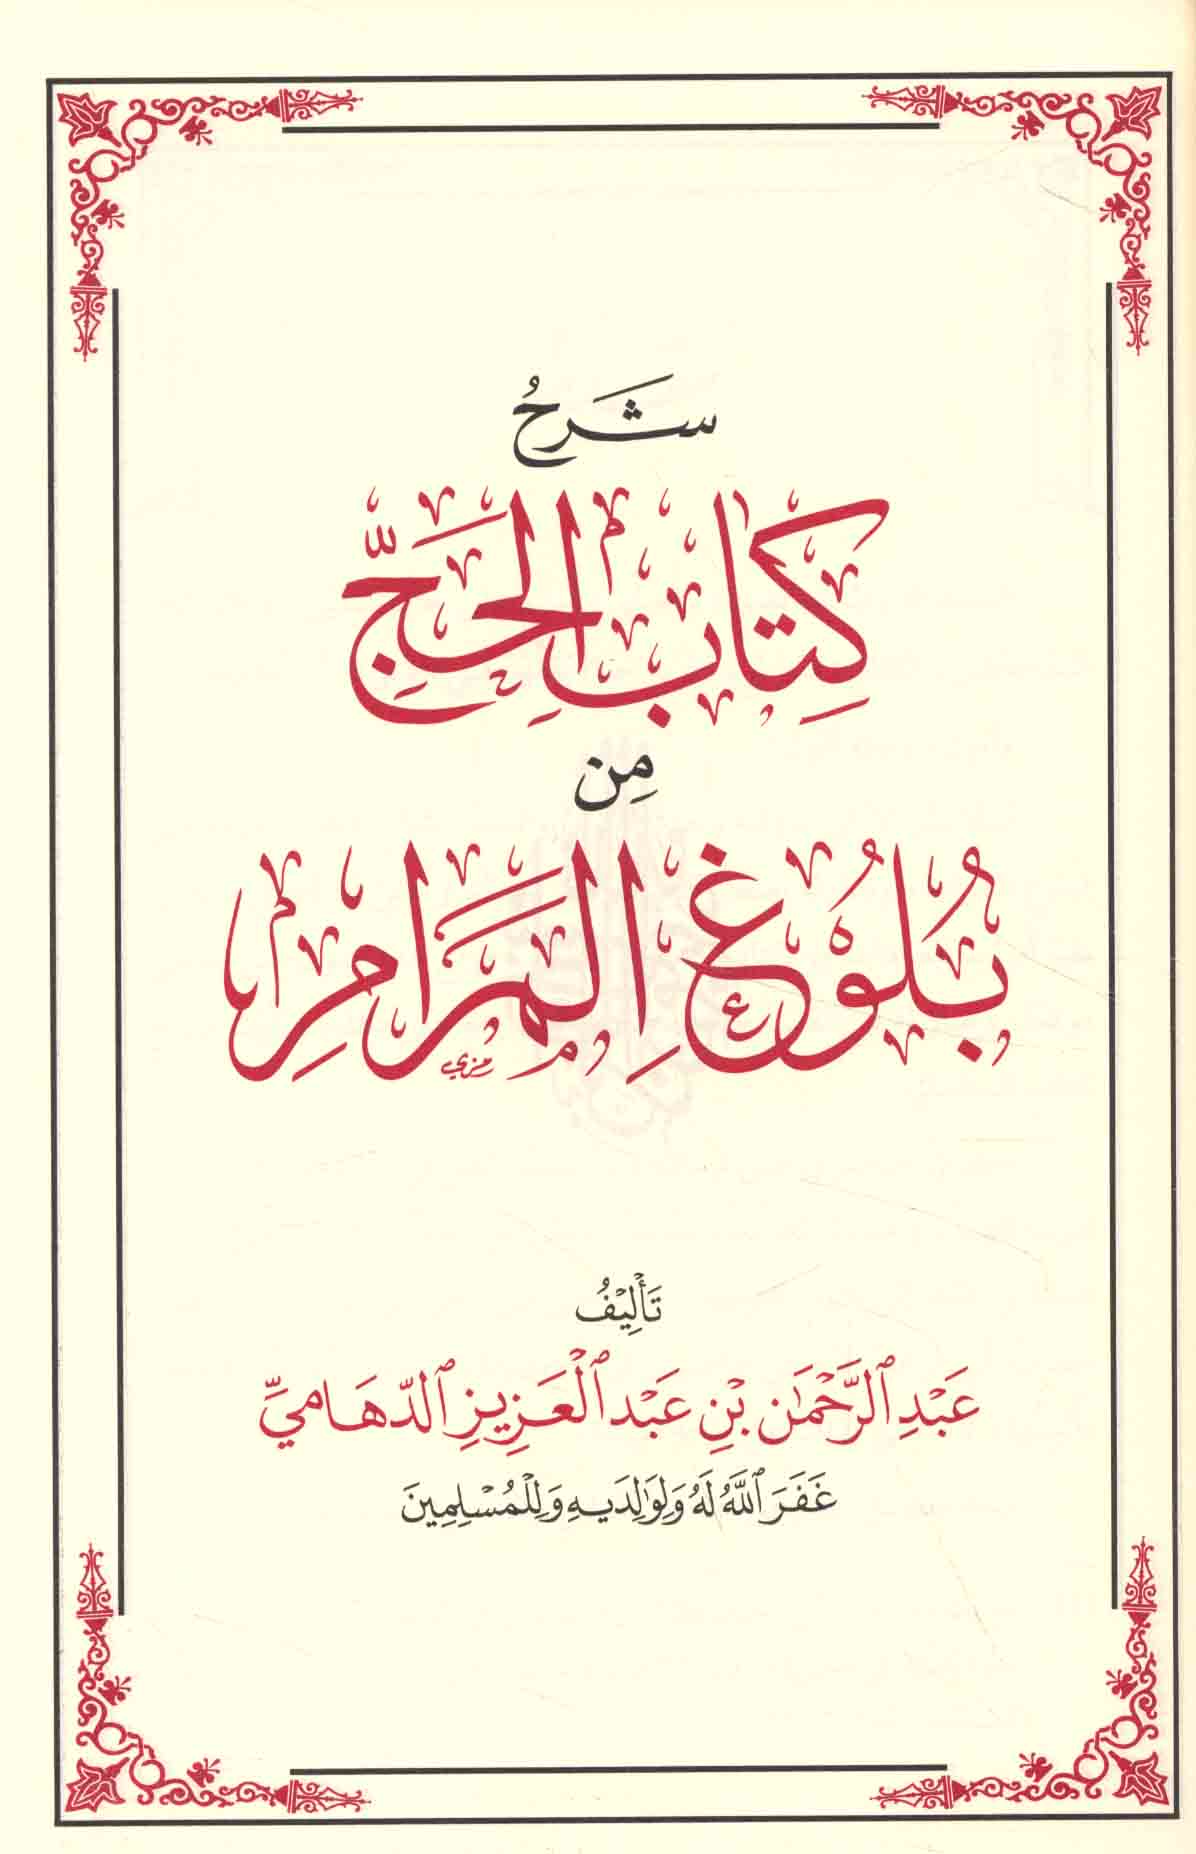 شَرْحُ
كِتَابِ الْحَجِّ
مِن
بُلُوْغِ الْمَرَامِ
رمزي
تَأْلِيْفُ
عَبْدِ الرَّحْمَٰنِ بْنِ عَبْدِ الْعَزِيزِ الدّهَامِيِّ
غَفَرَ اللَّهُ لَهُ وَلِوَالِدَيهِ وَلِلْمُسْلِمِينَ